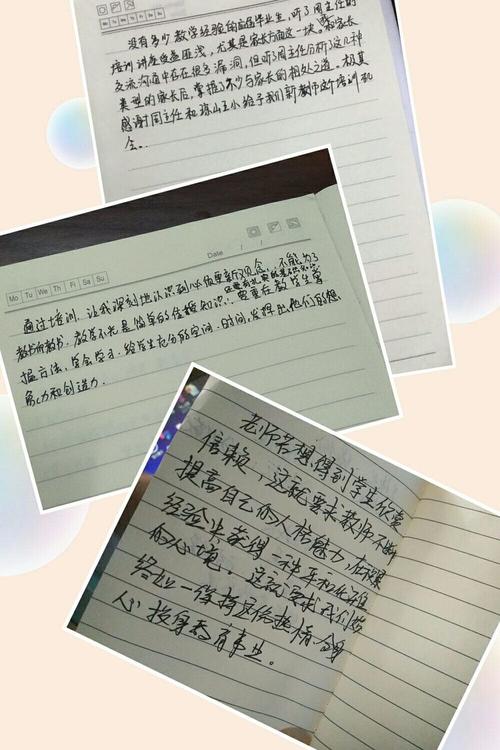 Mo Tu We Th Fr Sa Su
没有多少教学经验的应届毕业生，听了周主任的
培训讲座受益匪浅，尤其是家长方面这一块。和家长
交流沟通中存在很多漏洞，但听了周主任分析了这几种
类型的家长后，掌握了不少与家长的相处之道。极其
感谢周主任和琼山三小给予我们新教师这个培训机
会。
Date / /
Mo Tu We Th Fr Sa Su
通过培训，让我深刻地认识到必须更新观念，不能为了
教书而教书。教学不光是简单的传授知识，
重要在教学生掌
握方法，学会学习。给学生充分的空间、时间，发挥出他们的想
象力和创造力。
老师若想得到学生依赏
信赖，这就要求教师不断
提高自己的人格魅力，在积累
经验中获得一种平和、乐
的心境。这就要求我们始
终如一保持这份热情，全身
心投身教育事业。